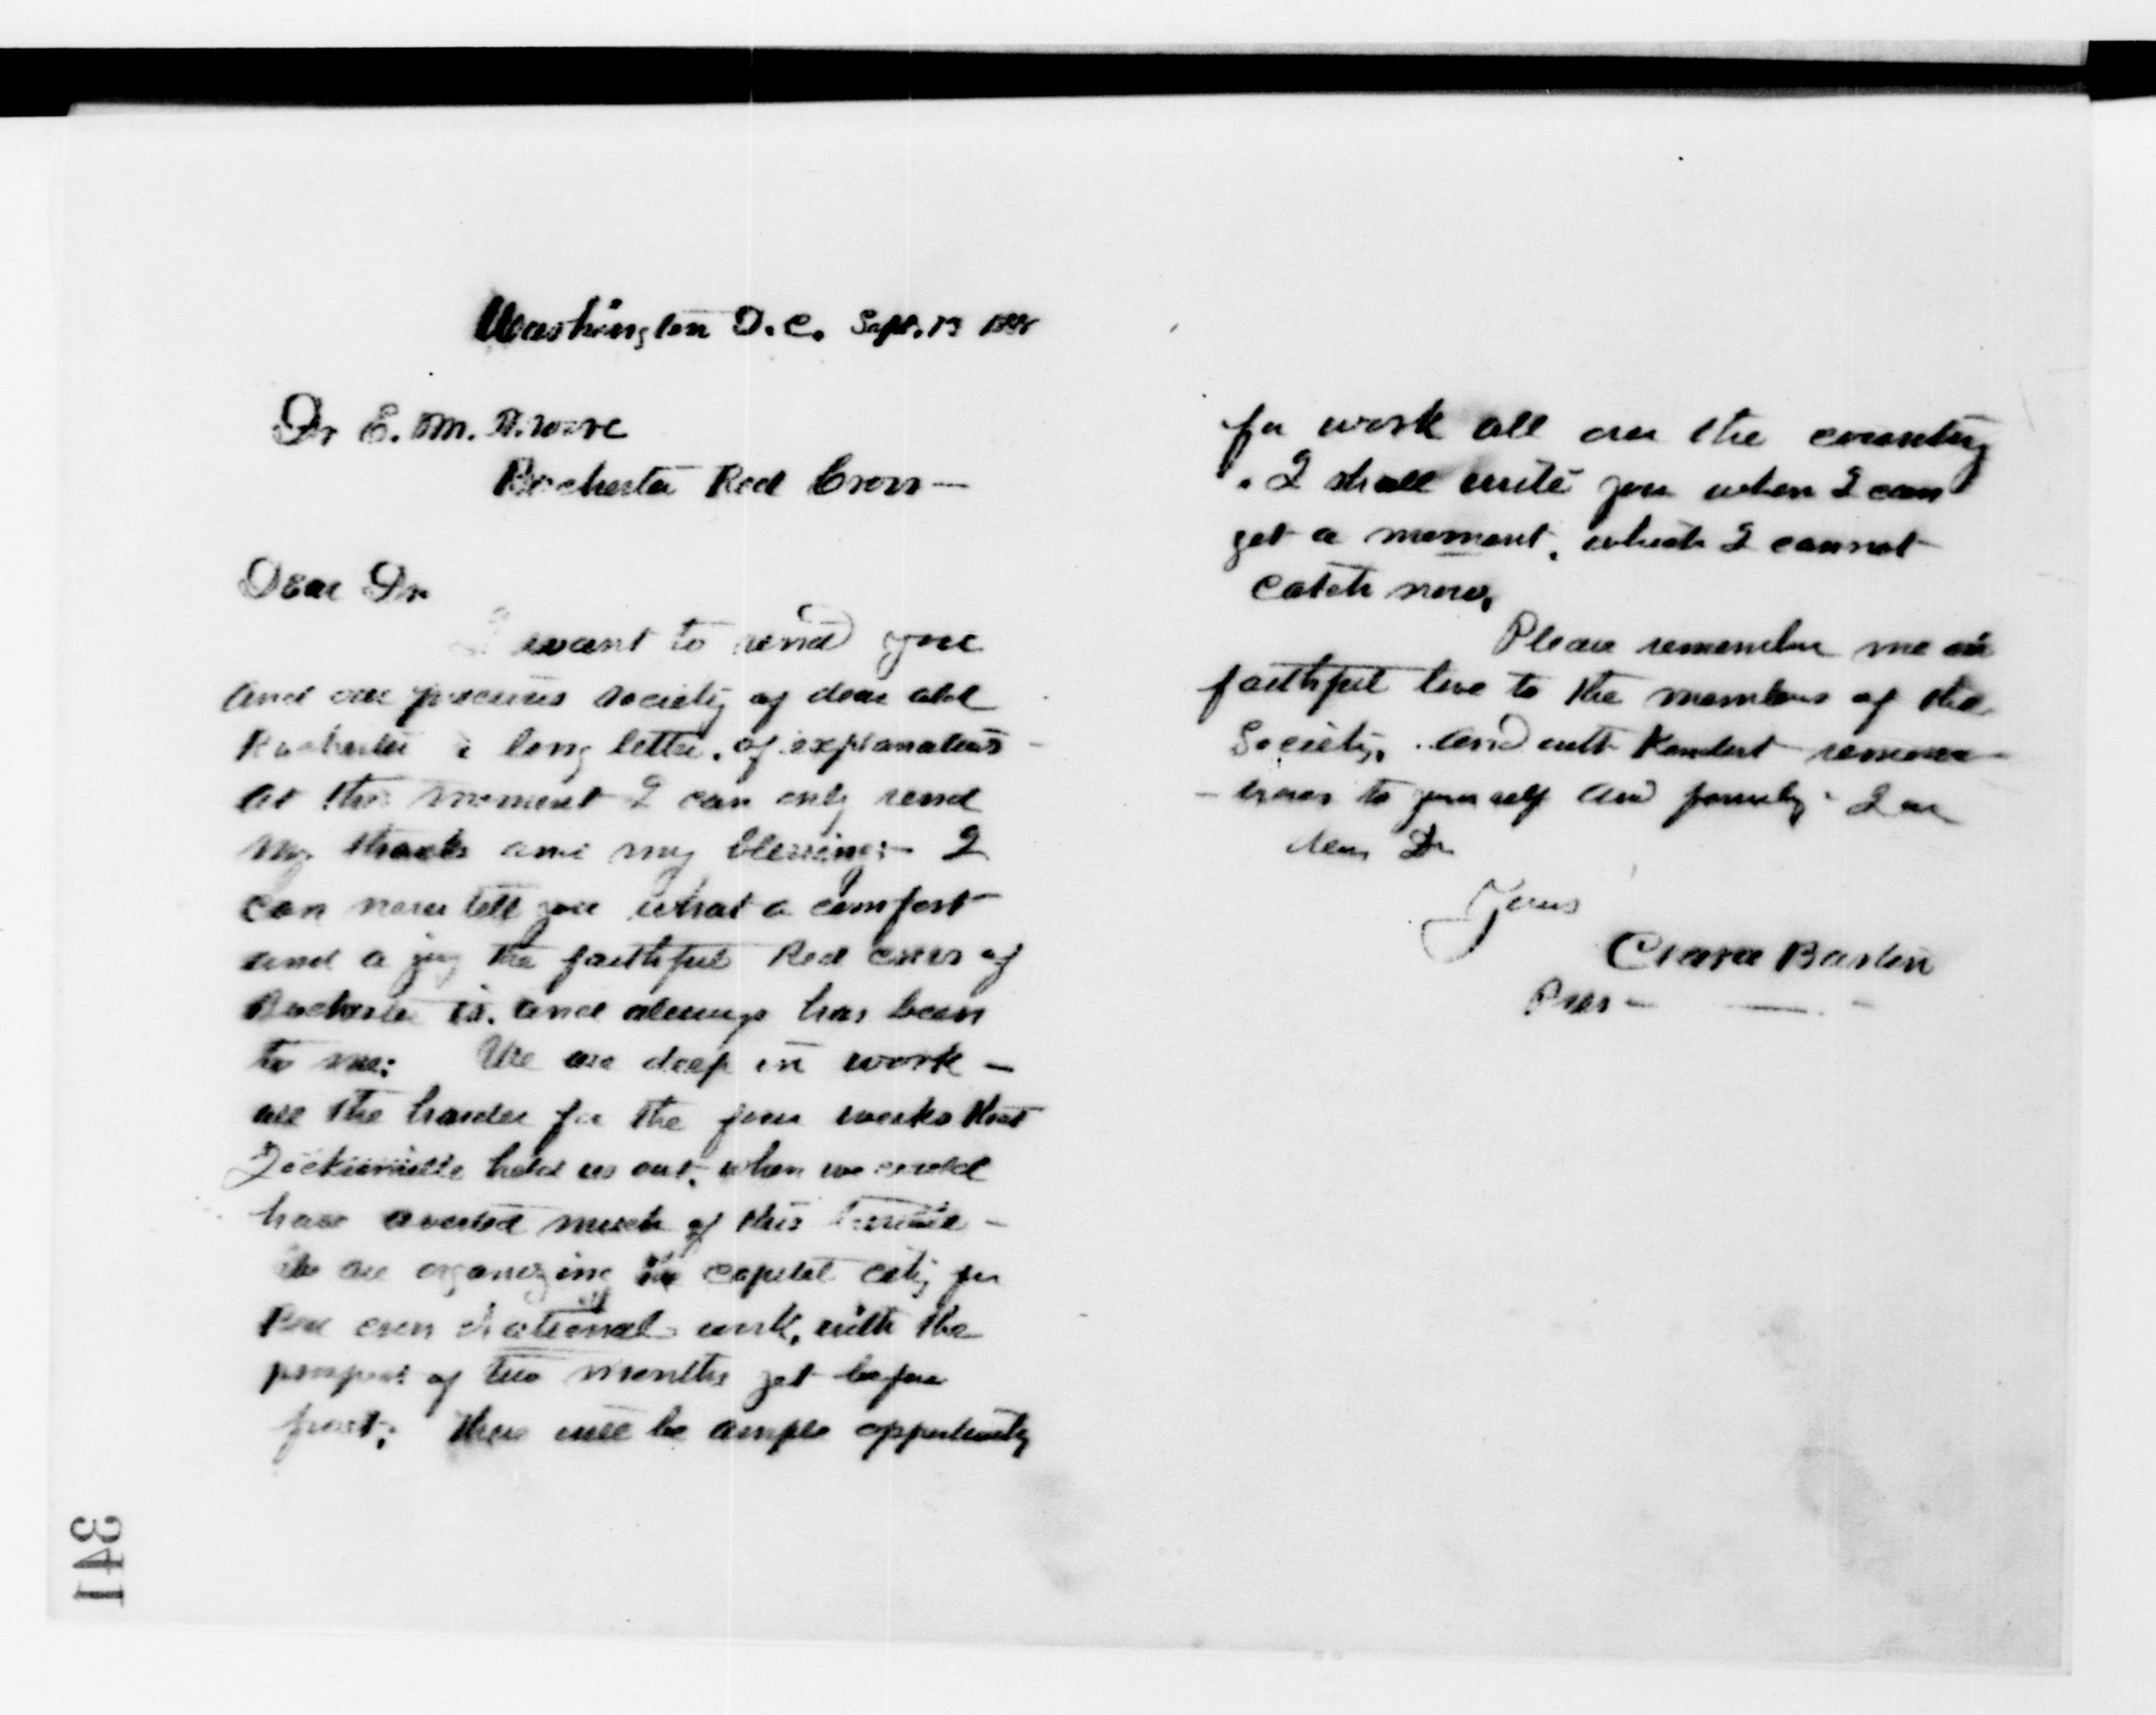 Washington D.C. Sept. 19 1888
Dr E. M. Moore
Rochester Red Cross —
Dear Dr
I want to send you
and our precious society of dear old
Rochester a long letter, of explanations —
at this moment I can only send
my thanks and my blessing: — I
can never tell you what a comfort
and a joy the faithful Red Cross of
Rochester is, and always has been
to me: We are deep in work —
all the harder for the four weeks that
Jacksonville held us out, when we could
have averted much of this trouble —
We are organizing the capital city for
Red Cross National work, with the
prospect of two months yet before
frost; there will be ample opportunity
for work all over the country
. I shall write you when I can
get a moment, which I cannot
catch now.
Please remember me in
faithful love to the members of the
Society, and with kindest remem
- brances to yourself and family - I am
dear Dr
Yours
Clara Barton
Pres —
341